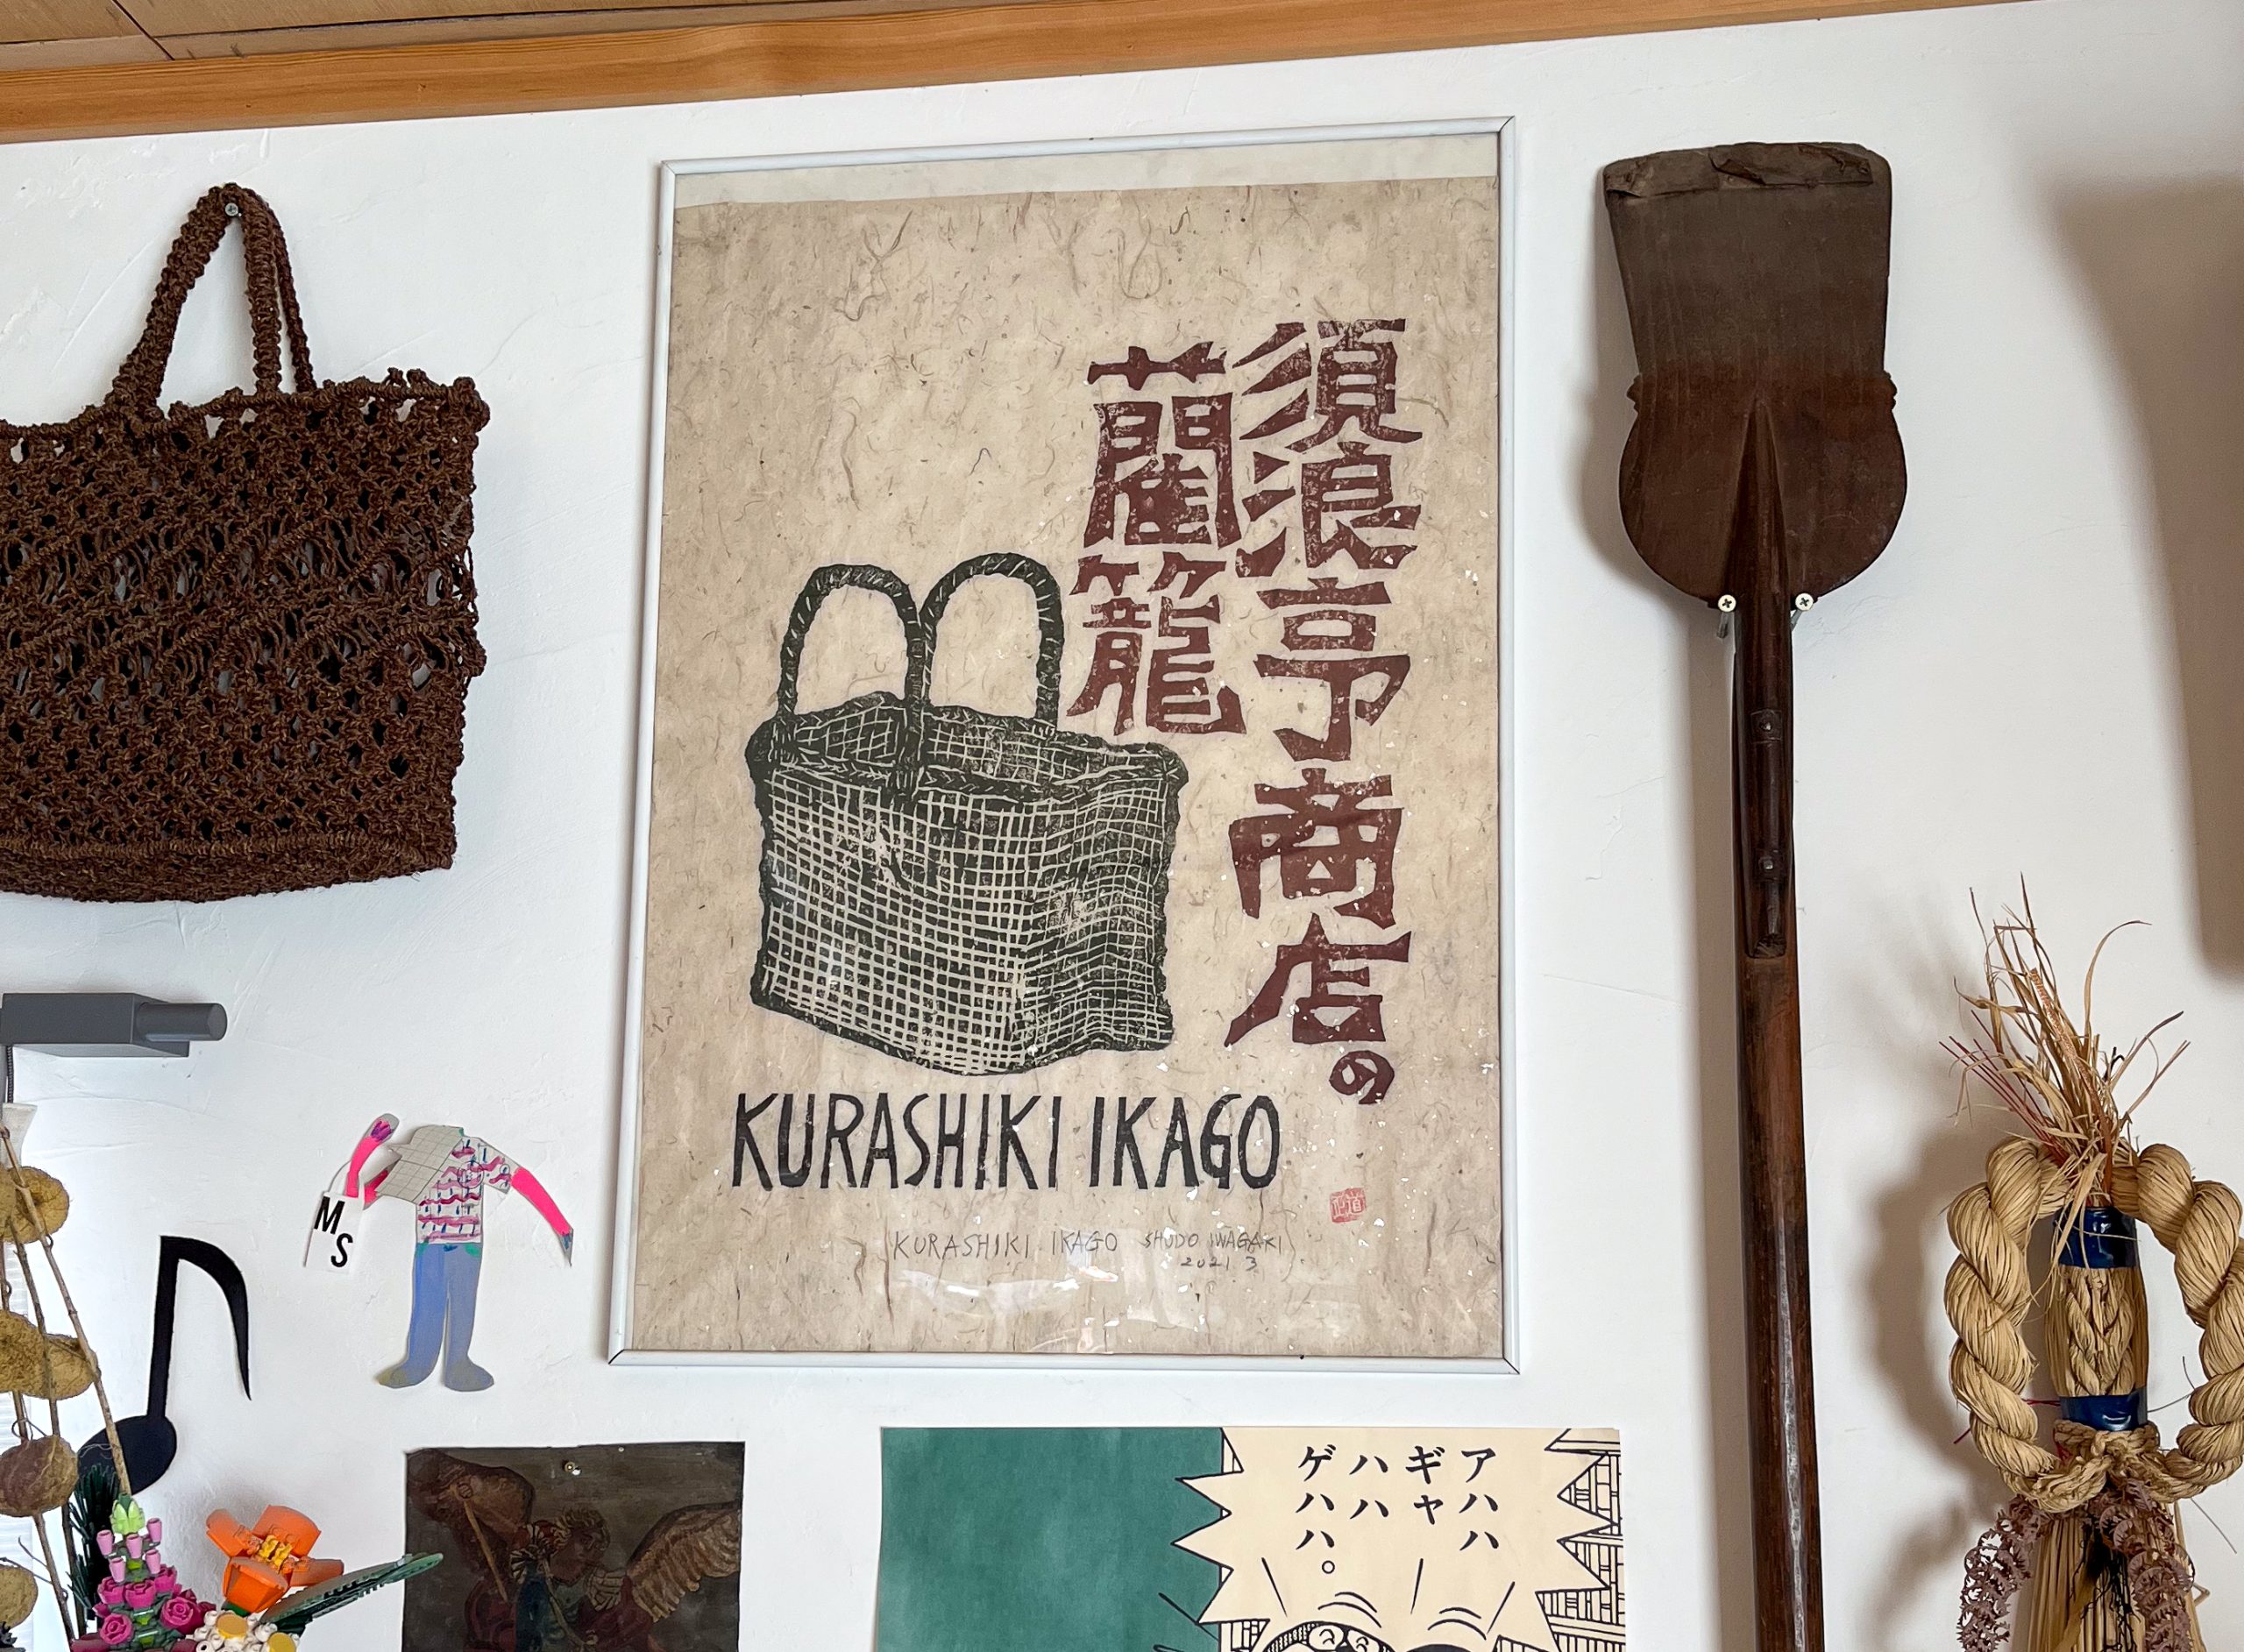 須浪亨商店の
藺籠
KURASHIKI IKAGO
KURASHIKI IKAGO SHUDO IWAGAKI
2021 3
M
S
アハハ
ギャ
ハハ
ゲハハ。